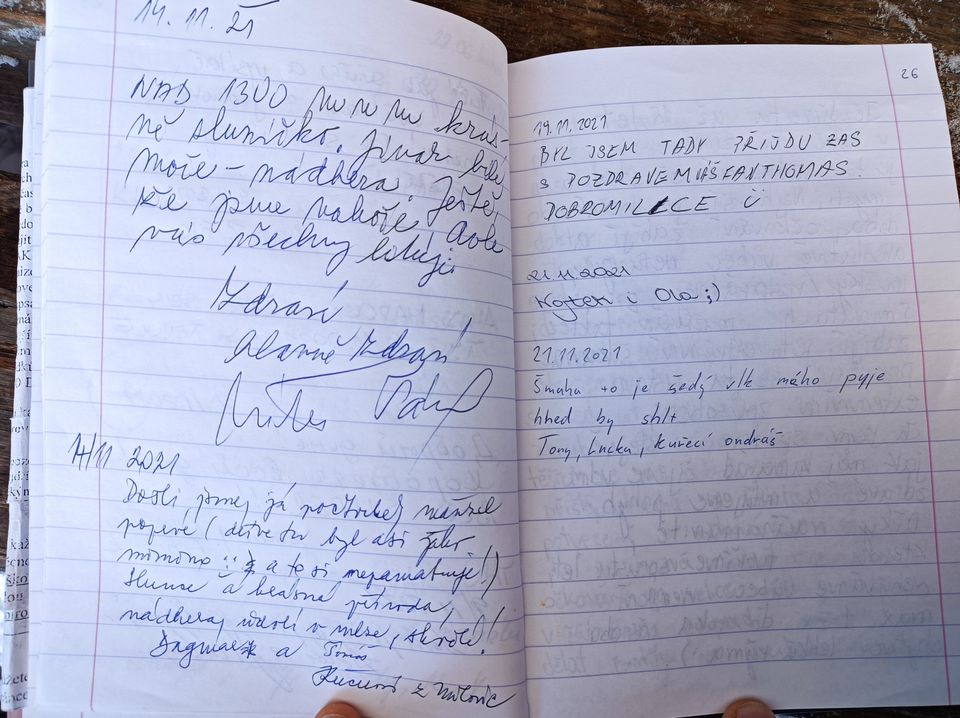 14. 11. 21
NAD 1300 m n m krás-
né sluníčko. Jinak bílé
moře - nádhera. Ještě,
že jsme nahoře. Dole
vás všechny lituji.
Zdraví
Zdraví
14/11 2021
Došli jsme, já počtvrté, manžel
poprvé (dříve tu byl asi jako
mimino a to si nepamatuje!)
Slunce a krásná příroda,
nádhera, údolí v mlze, skvělé!
Dagmar a Tomáš
z Milovic
26
19.11.2021
BYL JSEM TADY PŘIJDU ZAS
S POZDRAVEM VÁŠ FANTHOMAS.
DOBROMILICE Ü
21.11.2021
Wojtek i Ola ;)
21.11.2021
Šmaha to je šedý vlk mého pyje
hned by shlt
Tony, Lucka, kuřecí ondráš